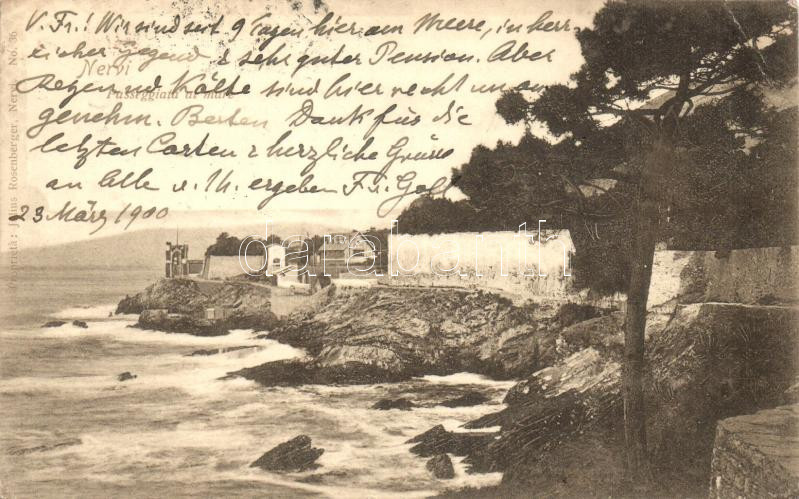 V. Fr.! Wir sind seit 9 Tagen hier am Meere, in herr-
licher Gegend & sehr guter Pension. Aber
Nervi
Regen und Kälte sind hier recht unan
Passeggiata al mare
genehm. Besten Dank für die
letzten Carten & herzliche Grüsse
an Alle v. Ih. ergeben Fr.
23 März 1900
Proprietà: Julius Rosenberger, Nervi. No. 36
darabanth